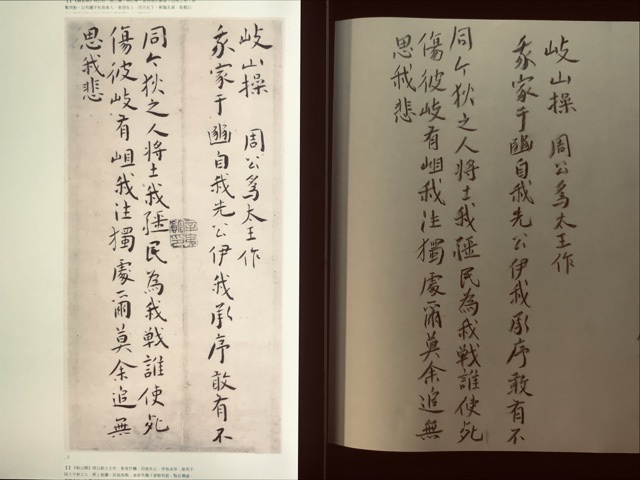 岐山操 周公爲太王作
我家于豳自我先公伊我承序敢有不
同今狄之人將土我疆民為我戰誰使死
傷彼岐有岨我往獨處爾莫余追無
思我悲
岐山操 周公爲太王作
我家于豳自我先公伊我承序敢有不
同今狄之人將土我疆民為我戰誰使死
傷彼岐有岨我往獨處爾莫余追無
思我悲